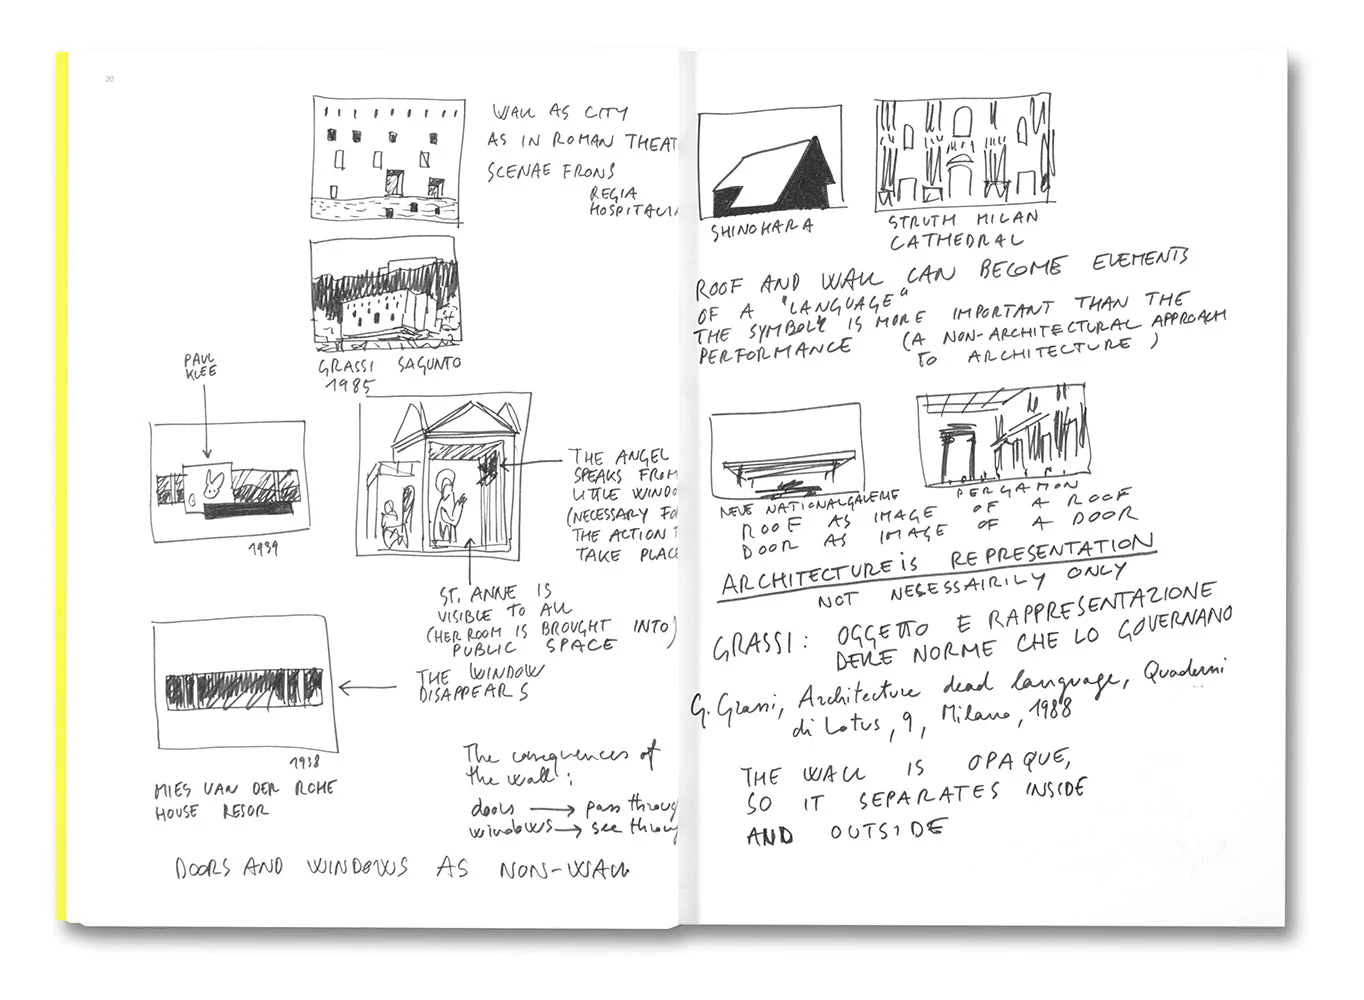 20
WALL AS CITY
AS IN ROMAN THEAT
SCENAE FRONS
REGIA
HOSPITALIA
GRASSI SAGUNTO
1985
PAUL
KLEE
1939
THE ANGEL
SPEAKS FROM
LITTLE WINDO
(NECESSARY FO
THE ACTION T
TAKE PLACE
ST. ANNE IS
VISIBLE TO ALL
(HER ROOM IS BROUGHT INTO)
PUBLIC SPACE
THE WINDOW
DISAPPEARS
1938
MIES VAN DER ROHE
HOUSE RESOR
The consequences of
the wall:
doors → pass throug
windows → see throug
DOORS AND WINDOWS AS NON-WALL
SHINOHARA
STRUTH MILAN
CATHEDRAL
ROOF AND WALL CAN BECOME ELEMENTS
OF A "LANGUAGE"
THE SYMBOL IS MORE IMPORTANT THAN THE
PERFORMANCE (A NON-ARCHITECTURAL APPROACH
TO ARCHITECTURE)
NEUE NATIONALGALERIE
PERGAMON
ROOF AS IMAGE OF A ROOF
DOOR AS IMAGE OF A DOOR
ARCHITECTURE IS REPRESENTATION
NOT NECESSAIRILY ONLY
GRASSI: OGGETTO E RAPPRESENTAZIONE
DELLE NORME CHE LO GOVERNANO
G. Grassi, Architecture dead language, Quaderni
di Lotus, 9, Milano, 1988
THE WALL IS OPAQUE,
SO IT SEPARATES INSIDE
AND OUTSIDE